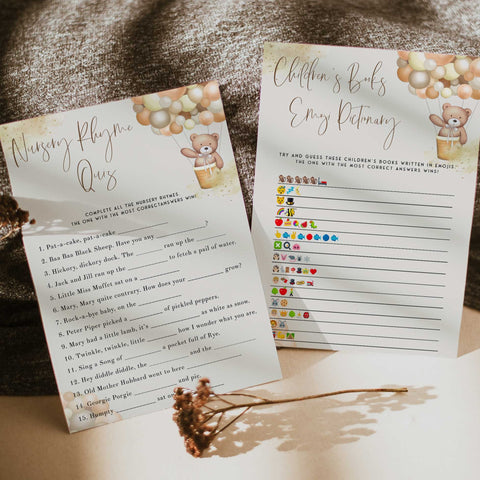 Nursery Rhyme
Quis
COMPLETE ALL THE NURSERY RHYMES.
THE ONE WITH THE MOST CORRECT ANSWERS WINS!
1. Pat-a-cake, pat-a-cake ____
2. Baa Baa Black Sheep. Have you any ____?
3. Hickory, dickory dock. The ____ ran up the ____
4. Jack and Jill ran up the ____ to fetch a pail of water.
5. Little Miss Muffet sat on a ____
6. Mary, Mary quite contrary. How does your ____ grow?
7. Rock-a-bye baby, on the ____
8. Peter Piper picked a ____ of pickled peppers.
9. Mary had a little lamb, it's ____ as white as snow.
10. Twinkle, twinkle, little ____ how I wonder what you are.
11. Sing a Song of ____ a pocket full of Rye.
12. Hey diddle diddle, the ____ and the ____
13. Old Mother Hubbard went to here ____
14. Georgie Porgie ____ and pie.
15. Humpty ____ sat on a
Children's Books
Emoji Pictionary
TRY AND GUESS THESE CHILDREN'S BOOKS WRITTEN IN EMOJIS.
THE ONE WITH THE MOST CORRECT ANSWERS WINS!